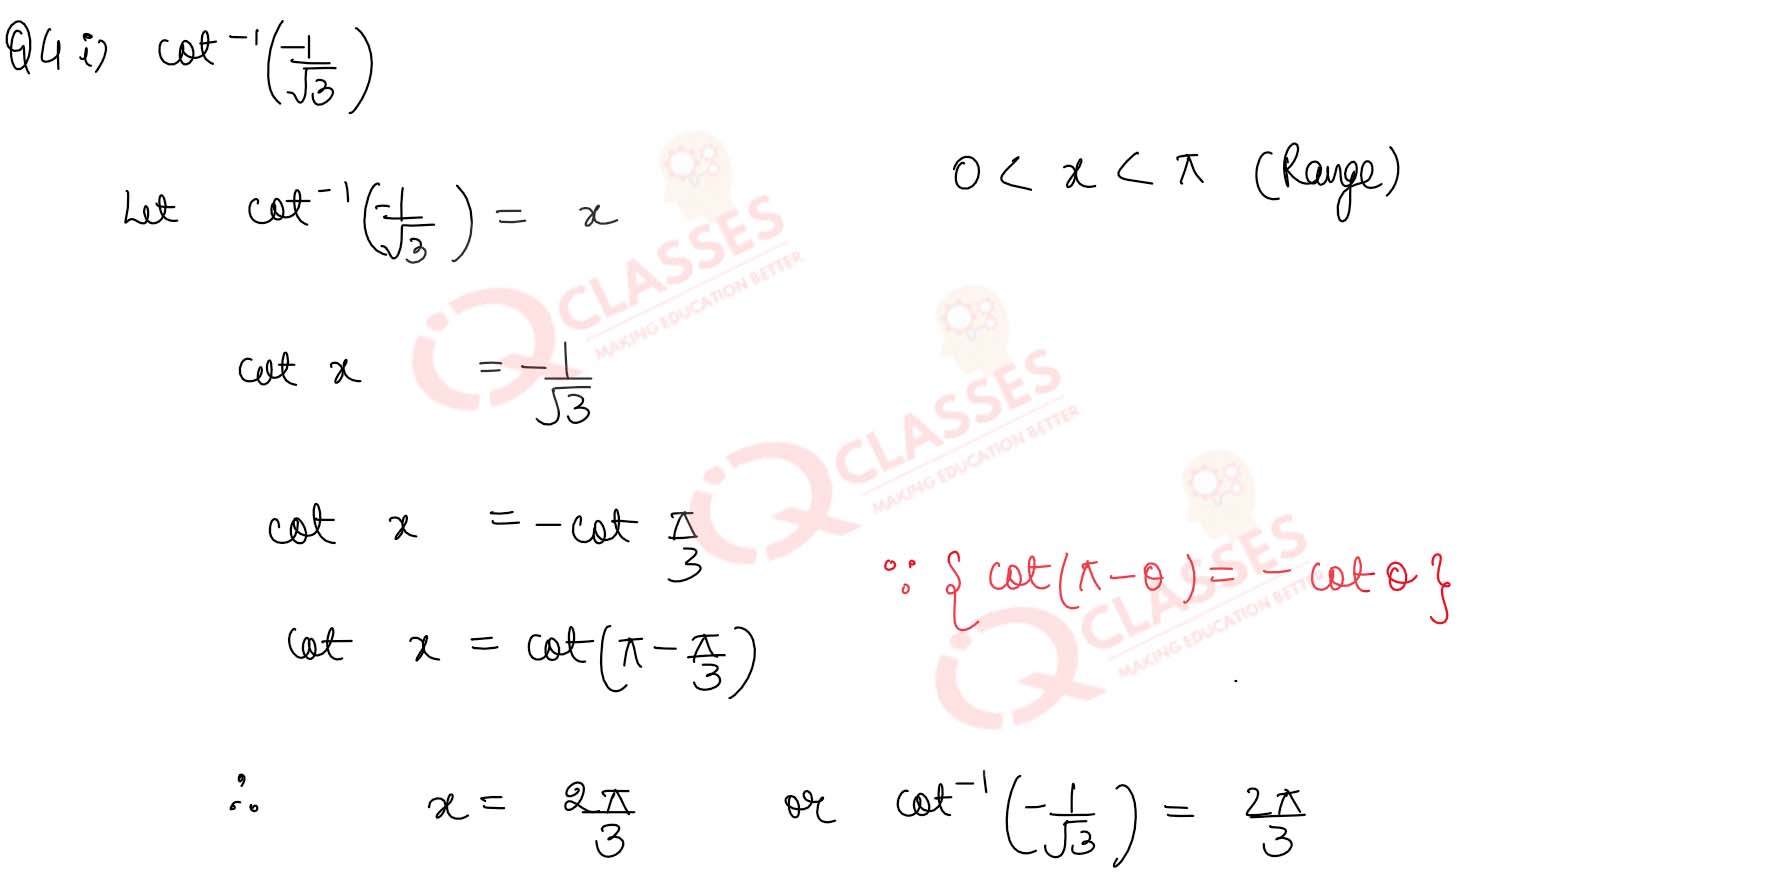 Q4 i) cot⁻¹(-1/√3)
0 < x < π (Range)
Let cot⁻¹(-1/√3) = x
cot x = -1/√3
cot x = -cot π/3
∵ { cot(π-θ) = - cot θ }
cot x = cot(π - π/3)
∴ x = 2π/3 or cot⁻¹(-1/√3) = 2π/3
iQ CLASSES
MAKING EDUCATION BETTER
iQ CLASSES
MAKING EDUCATION BETTER
iQ CLASSES
MAKING EDUCATION BETTER